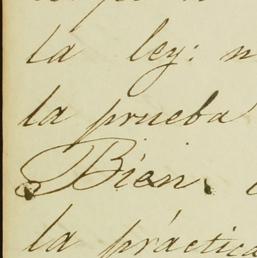 la ley: n
la prueba
Bien.
la práctica